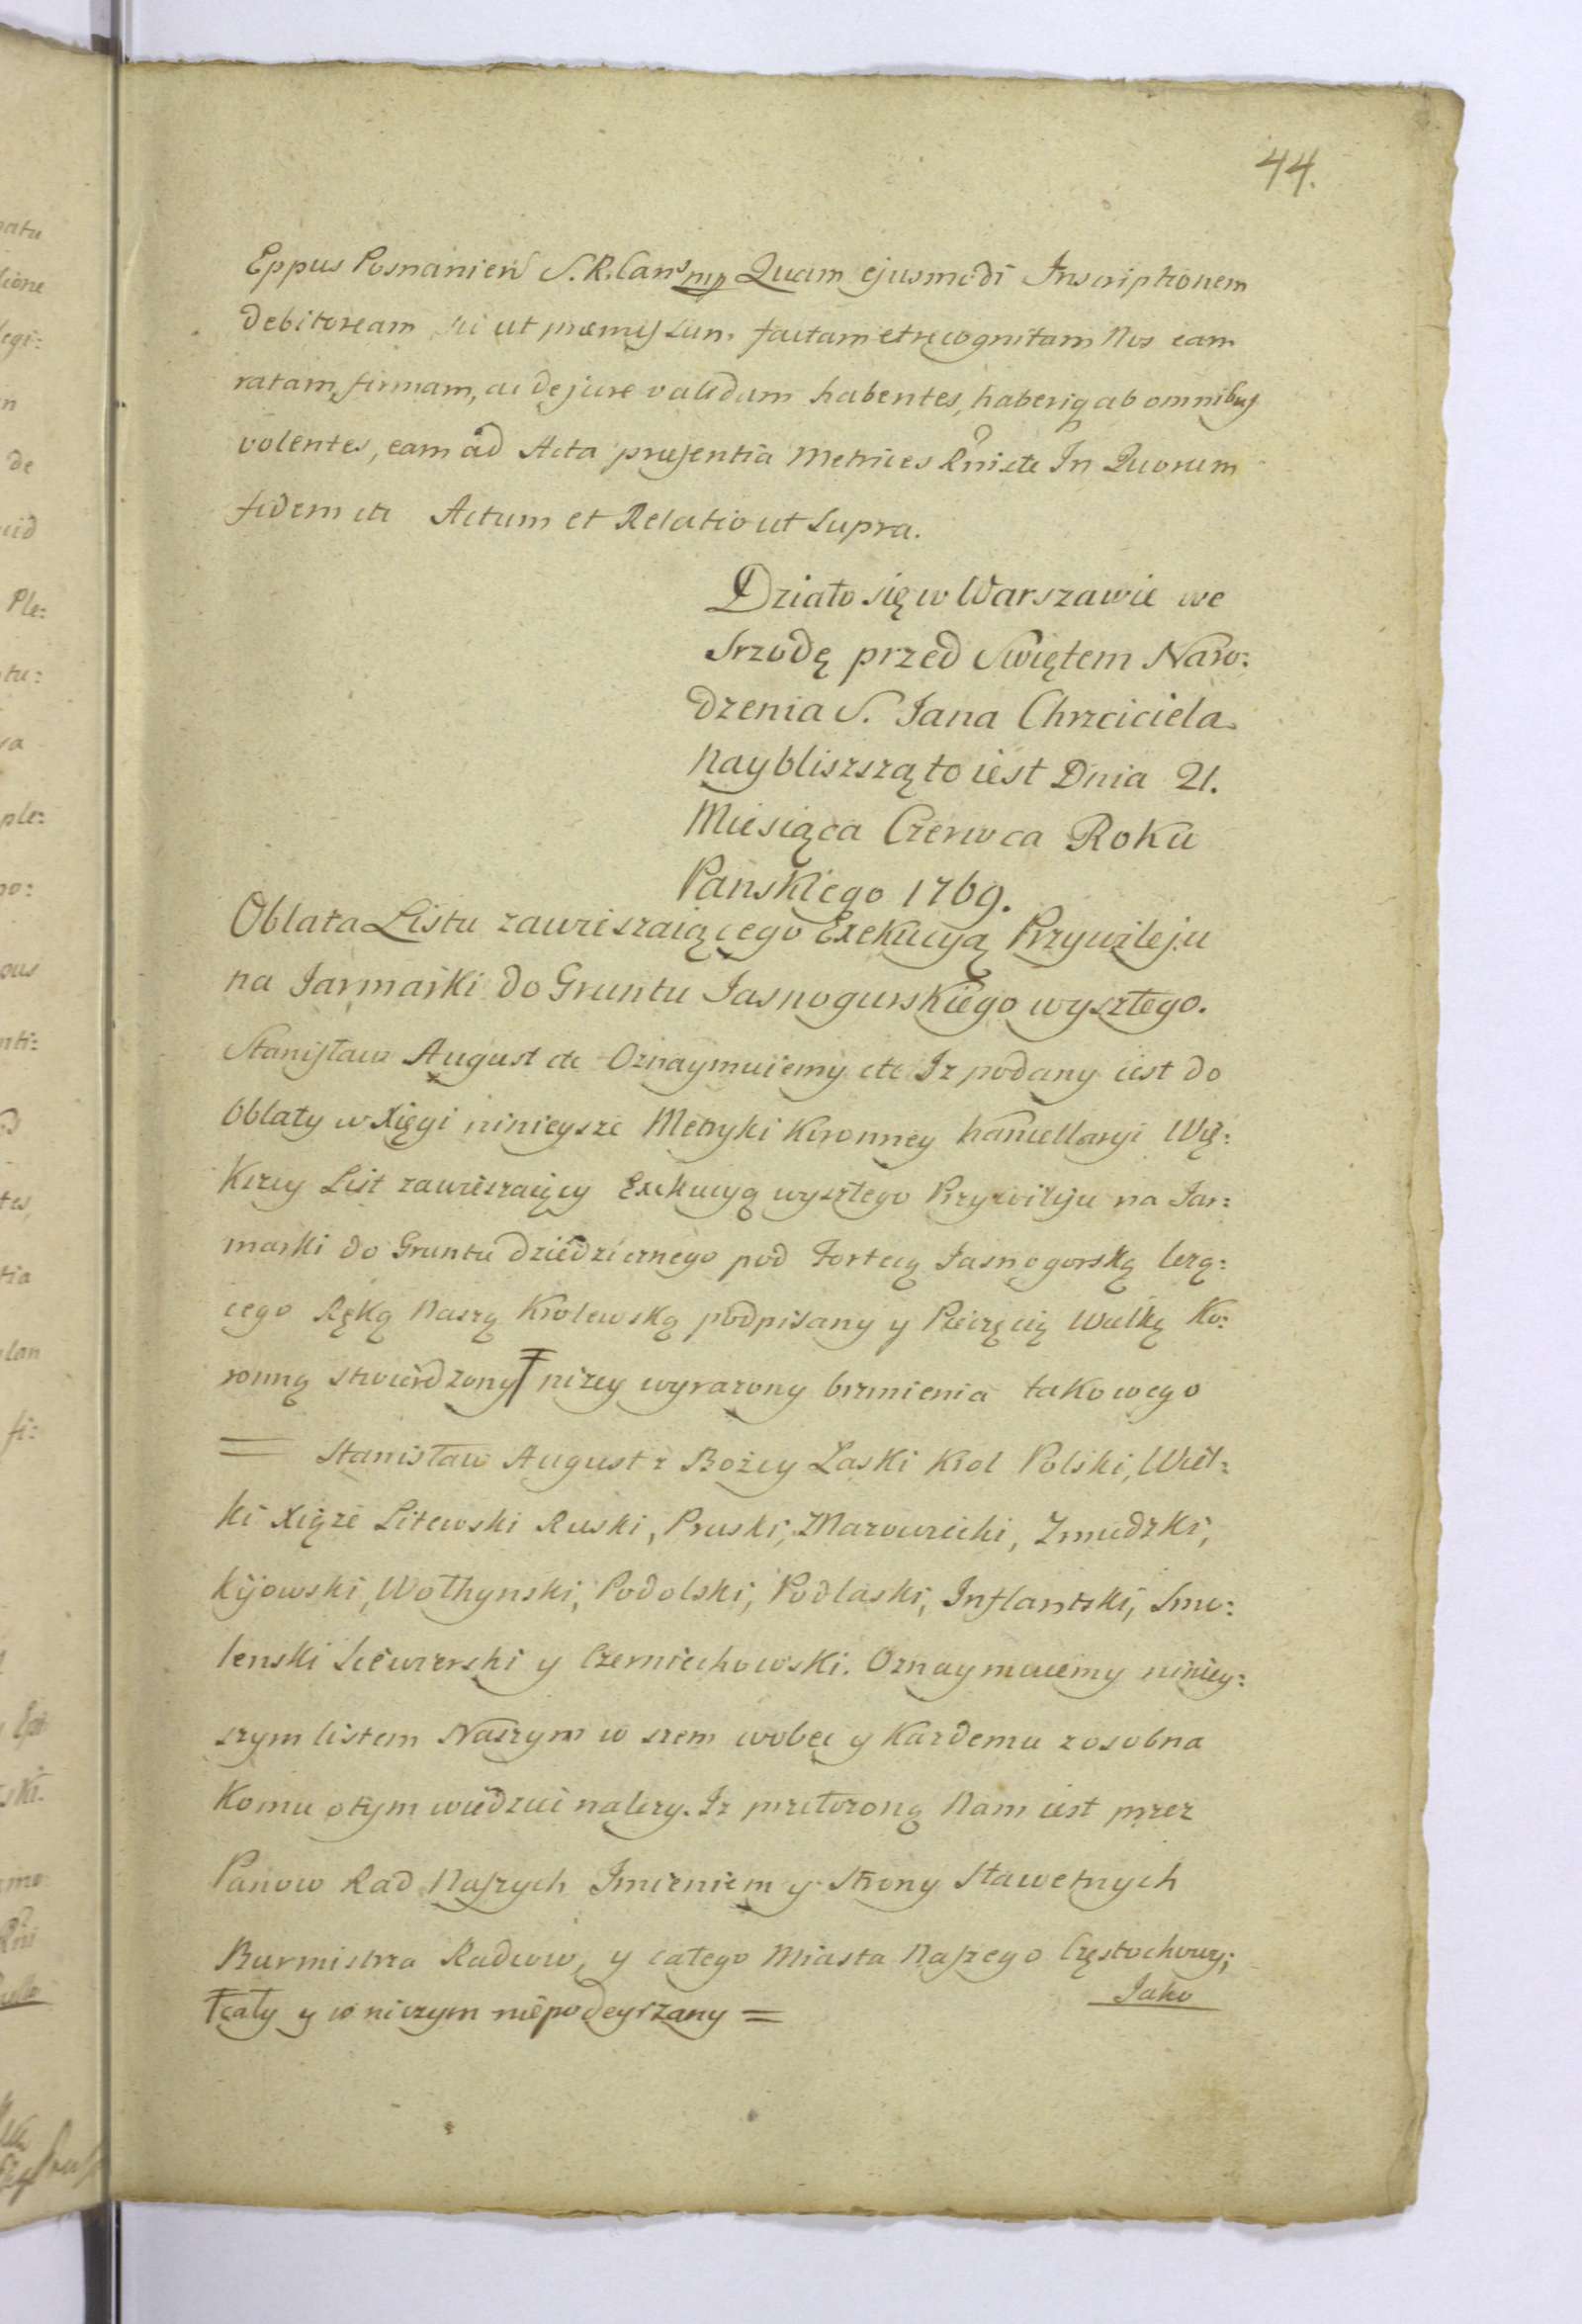 44.
Eppus Posnanień S. R. Cans mp Quam ejusmodi Inscriptionem
debitoream, sic ut præmissum, factam et recognitam Nos eam
ratam, firmam, ac de jure validam habentes, haberiq ab omnibus
volentes, eam ad Acta præsentia Metrices Rni etc In Quorum
fidem etc Actum et Relatio ut Supra.
Działo się w Warszawie we
Srzodę przed Swiętem Naro:
dzenia S. Jana Chrzciciela
naybliszszą to iest Dnia 21.
Miesiąca Czerwca Roku
Panskiego 1769.
Oblata Listu zawieszaiącego Exekucyą Przywileju
na Jarmarki do Gruntu Jasnogurskiego wyszłego.
Stanisław August etc Oznaymuiemy etc Iz podany iest do
Oblaty w Xięgi ninieysze Metryki Koronney Kancellaryi Wię:
Kszey List zawieszaiący Exekucyą wyszłego Przywileju na Jar:
marki do Gruntu dziedzicznego pod Fortecą Jasnogorską lezą:
cego Ręką Naszą Krolewską podpisany y Pieczęcią Wielką Ko:
ronną stwierdzony Ŧ nizey wyrazony brzmienia takowego
= Stanisław August z Bożey Łaski Krol Polski, Wiel:
ki Xiąze Litewski Ruski, Pruski, Mazowiecki, Zmudzki,
Kijowski, Wołhynski, Podolski, Podlaski, Inflantski, Smo:
lenski Siewierski y Czerniechowski. Oznaymuiemy niniey:
szym listem Naszym w szem wobec y Kazdemu zosobna
Komu otym wiedziec nalezy. Iz przełozoną Nam iest przez
Panow Rad Naszych Imieniem y Strony Sławetnych
Burmistrza Radcow, y całego Miasta Naszego Częstochowy;
Jako
Ŧ cały y w niczym niepodeyrzany =